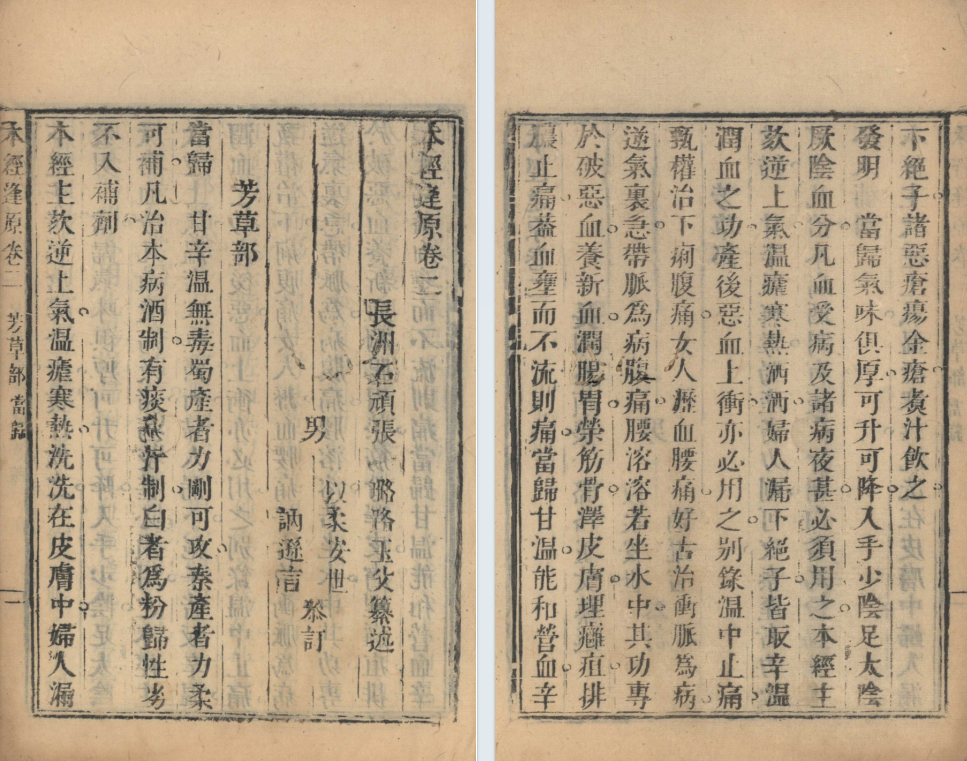 本經逢原卷二
長洲石頑張璐路玉父纂述
男
以柔安世
訥遜言
叅訂
芳草部
當歸 甘辛溫無毒蜀產者力剛可攻秦產者力柔
可補凡治本病酒制有痰薑汁制白者爲粉歸性劣
不入補劑
本經主欬逆上氣溫瘧寒熱洗洗在皮膚中婦人漏
本經逢原卷二 芳草部 當歸 一
下絕子諸惡瘡瘍金瘡煑汁飲之
發明 當歸氣味俱厚可升可降入手少陰足太陰
厥陰血分凡血受病及諸病夜甚必須用之本經主
欬逆上氣溫瘧寒熱洒洒婦人漏下絕子皆取辛溫
潤血之功產後惡血上衝亦必用之別錄溫中止痛
甄權治下痢腹痛女人瀝血腰痛好古治衝脈爲病
逆氣裏急帶脈爲病腹痛腰溶溶若坐水中其功專
於破惡血養新血潤腸胃榮筋骨澤皮膚理癰疽排
膿止痛葢血壅而不流則痛當歸甘溫能和營血辛